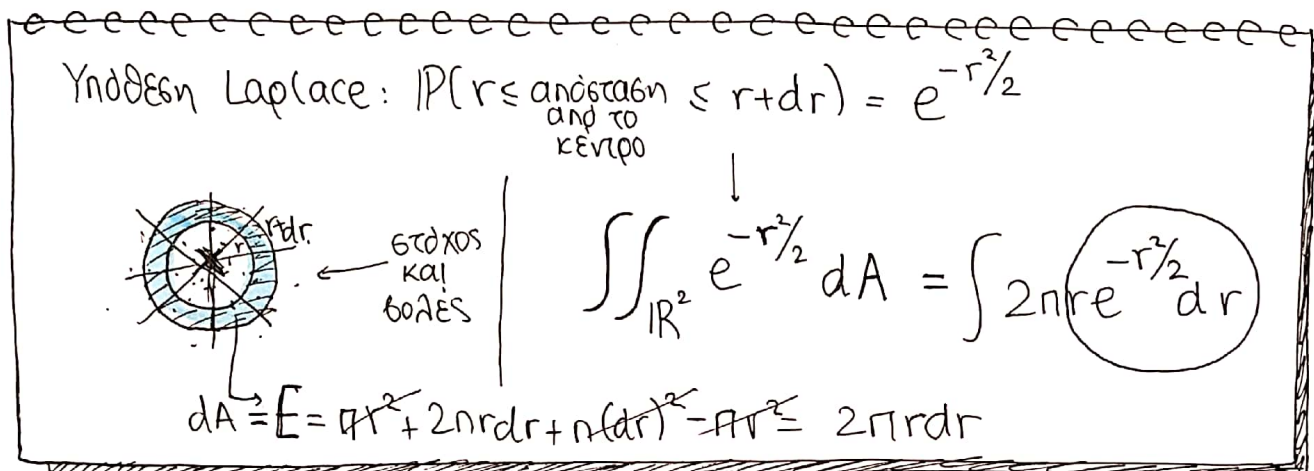 Υπόθεση Laplace: ℙ(r ≤ απόσταση ≤ r+dr) = e^{-r²/2}
από το
κέντρο
r+dr
r
στόχος
και
βολές
∬_{ℝ²} e^{-r²/2} dA = ∫ 2πre^{-r²/2} dr
dA = E = πr² + 2πrdr + π(dr)² - πr² = 2πrdr